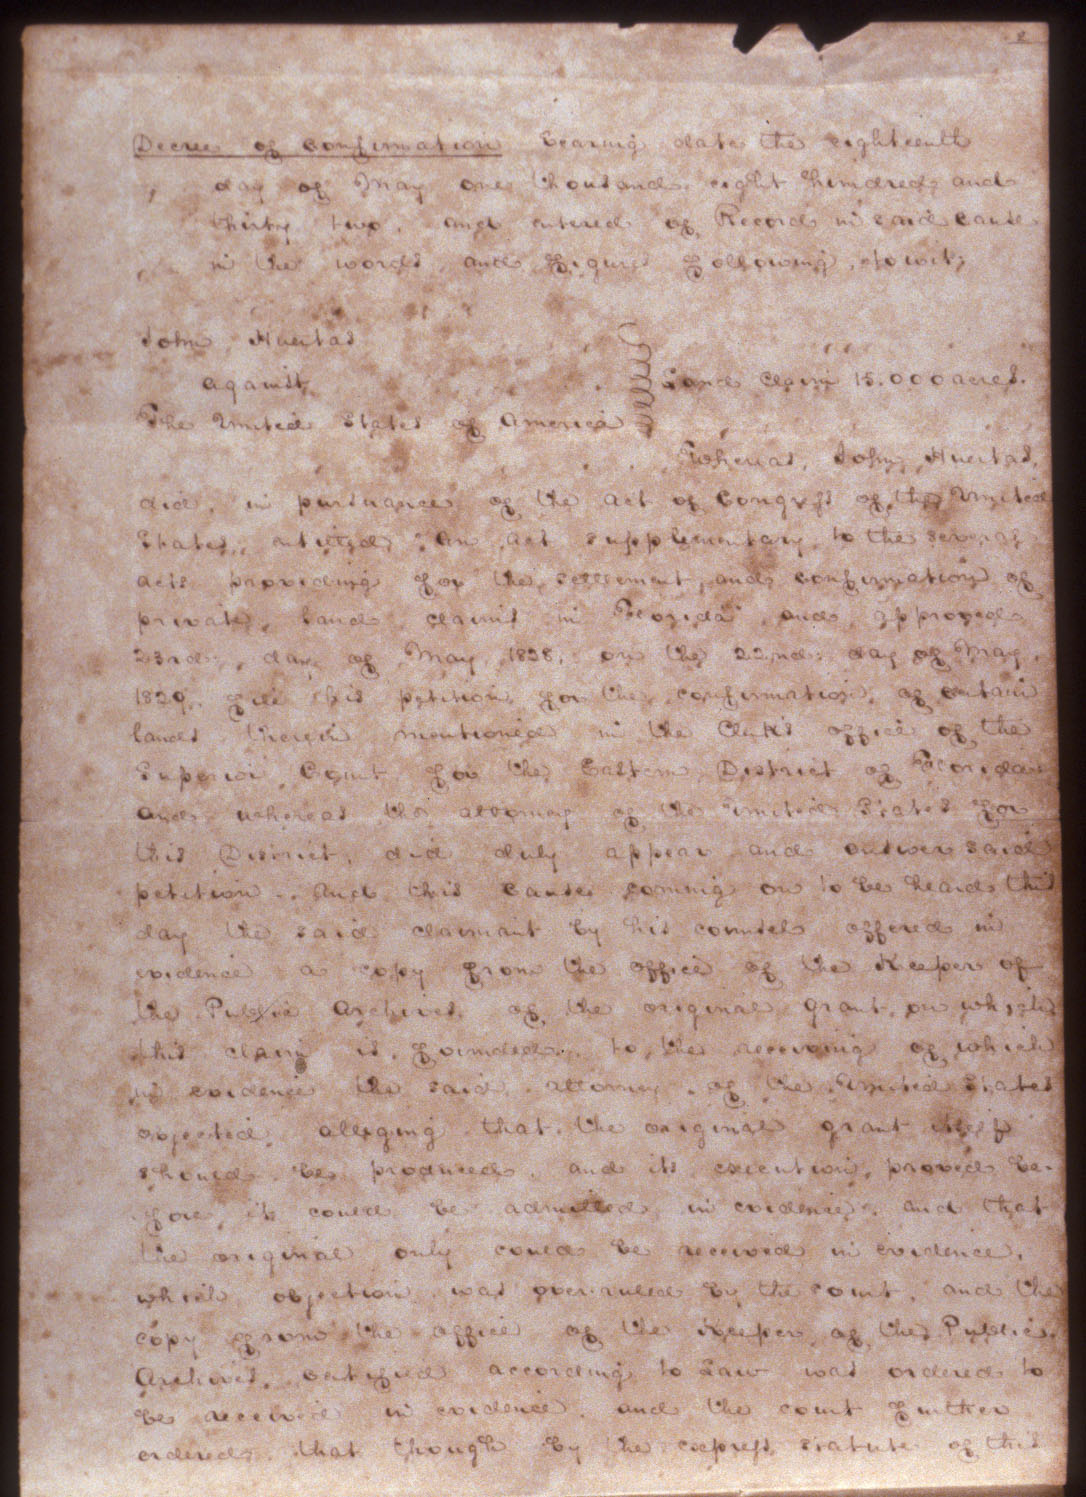 2
Decree of Confirmation bearing date the eighteenth
day of May one thousand eight hundred and
thirty two, and entered of Record in said cause
in the words and figures following, to wit;
John Huertas
against
Land Claim 15.000 acres.
The United States of America
Whereas, John Huertas,
did, in pursuance of the act of Congress of the United
States, entitled "An act supplementary to the several
acts providing for the settlement and confirmation of
private land claims in Florida" and approved
23rd, day of May, 1828, on the 22nd day of May,
1829, file his petition for the confirmation of certain
lands therein mentioned in the Clerk's office of the
Superior Court for the Eastern District of Florida
and whereas the attorney of the United States for
this District, did duly appear and answer said
petition. And this cause coming on to be heard this
day the said claimant by his counsel offered in
evidence a copy from the office of the Keeper of
the Public Archives, of the original grant on which
this claim is founded, to the receiving of which
in evidence the said attorney of the United States
objected, alleging that the original grant itself
should be produced, and its execution proved be-
fore it could be admitted in evidence, and that
the original only could be received in evidence,
which objection was over-ruled by the court, and the
copy from the office of the Keeper of the Public
Archives, certified according to Law was ordered to
be received in evidence, and the court further
ordered, that though by the express statute of this